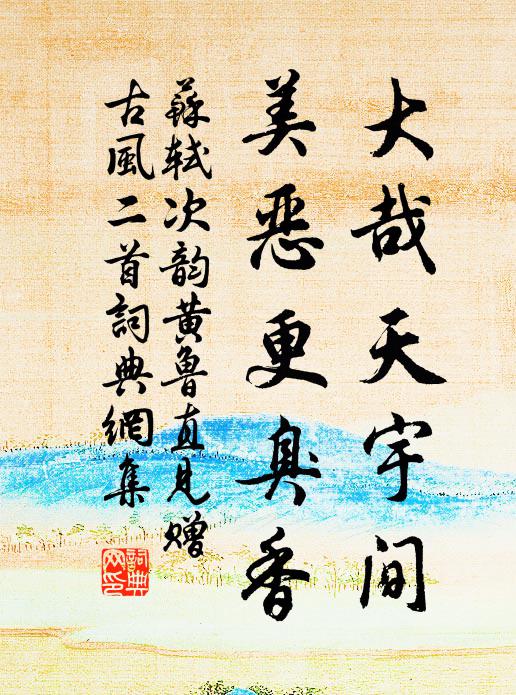 大哉天宇间
美恶更臭香
蘇軾次韵黄鲁直見赠
古風二首詞典網集
詞典
网印